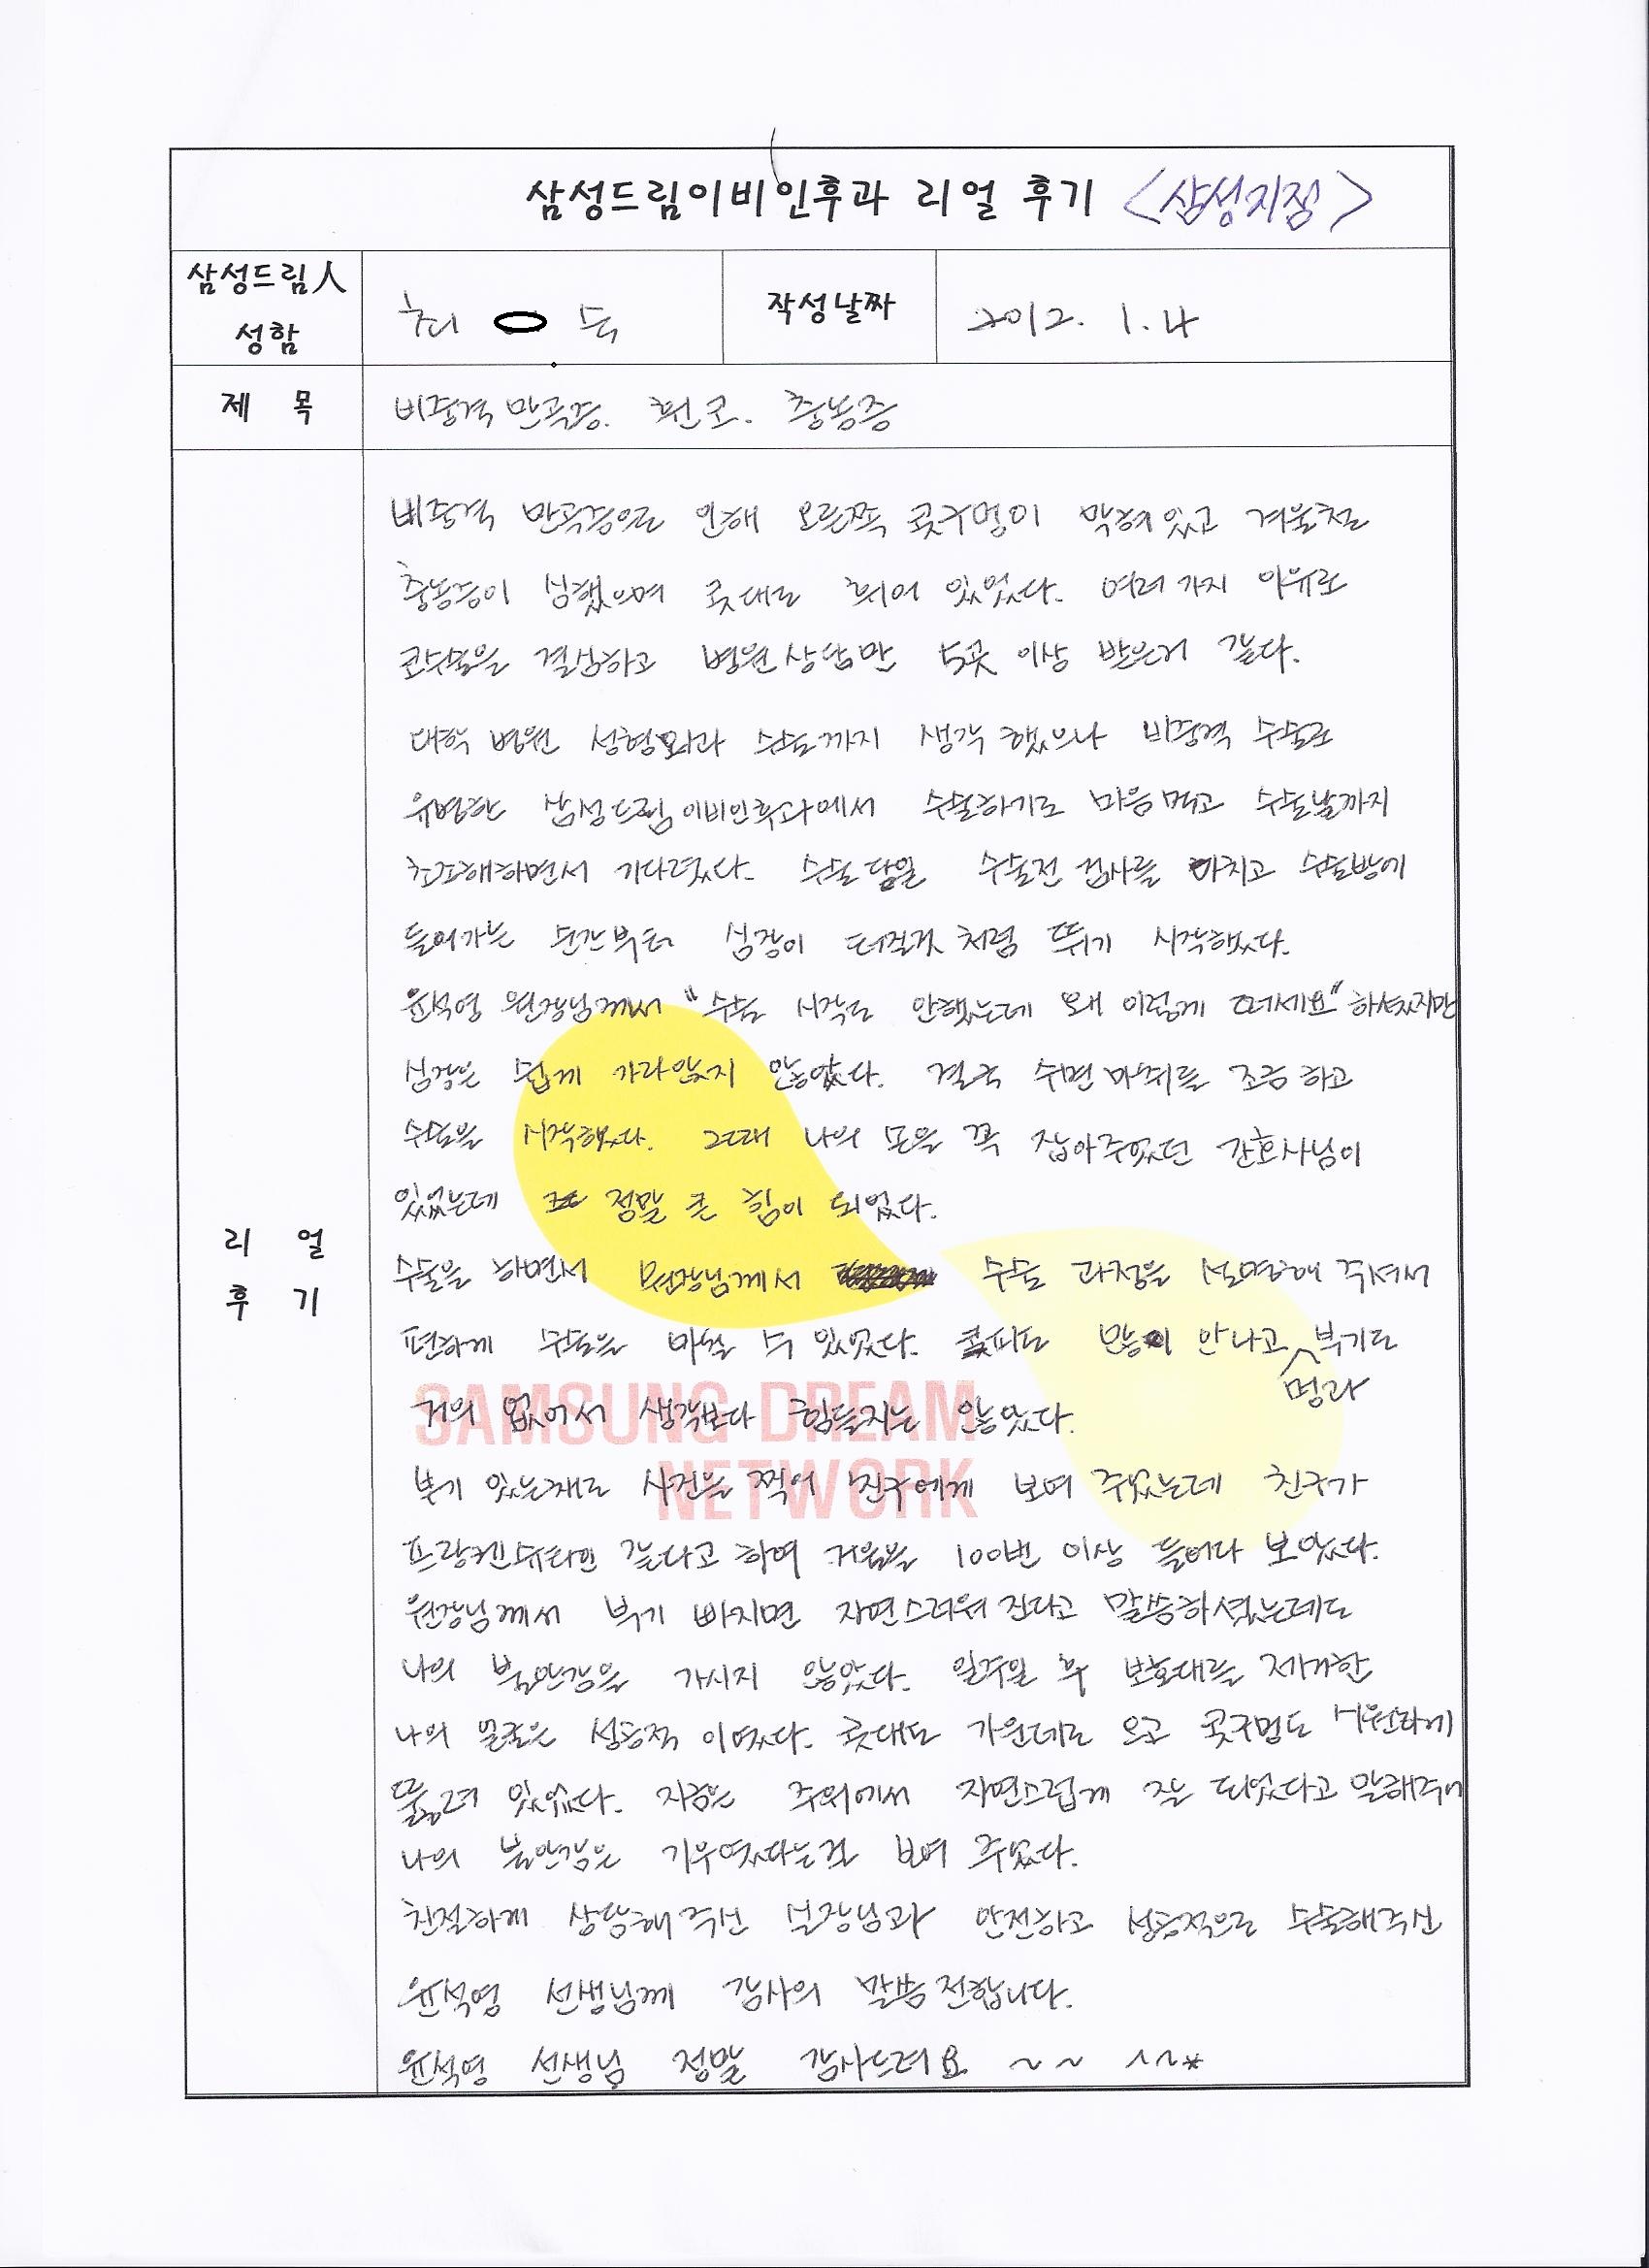 삼성드림이비인후과 리얼 후기 <삼성지점>
삼성드림人
성함
최 숙
작성날짜
2012. 1. 4
제 목
비중격 만곡증. 휜코. 충농증
비중격 만곡증으로 인해 오른쪽 콧구멍이 막혀있고 겨울철
충농증이 심했으며 콧대도 휘어 있었다. 여러가지 이유로
코수술을 결심하고 병원상담만 5곳 이상 받은거 같다.
대학 병원 성형외과 수술까지 생각 했으나 비중격 수술로
유명한 삼성드림이비인후과에서 수술하기로 마음 먹고 수술날까지
초조해하면서 기다렸다. 수술 당일 수술전 검사를 마치고 수술방에
들어가는 순간부터 심장이 터질것 처럼 뛰기 시작했다.
윤석영 원장님께서 "수술 시작도 안했는데 왜 이렇게 떠세요" 하셨지만
심장은 쉽게 가라앉지 않았다. 결국 수면 마취를 조금 하고
수술을 시작했다. 그때 나의 손을 꼭 잡아주었던 간호사님이
있었는데 정말 큰 힘이 되었다.
수술을 하면서 원장님께서 수술 과정을 설명해 주셔서
편하게 수술을 마칠 수 있었다. 코피도 많이 안나고 멍과 붓기도
거의 없어서 생각보다 힘들지는 않았다.
SAMSUNG DREAM
NETWORK
붓기 있는채로 사진을 찍어 친구에게 보여 주었는데 친구가
프랑켄슈타인 같다고 하여 거울을 100번 이상 들여다 보았다.
원장님께서 붓기 빠지면 자연스러워 진다고 말씀하셨는데도
나의 불안감은 가시지 않았다. 일주일 후 보호대를 제거한
나의 얼굴은 성공적 이였다. 콧대도 가운데로 오고 콧구멍도 시원하게
뚫려 있었다. 지금은 주위에서 자연스럽게 잘 되었다고 말해주어
나의 불안감은 기우였다는걸 보여 주었다.
친절하게 상담해 주신 실장님과 안전하고 성공적으로 수술해주신
윤석영 선생님께 감사의 말씀 전합니다.
윤석영 선생님 정말 감사드려요 ~~ ^^*
리 얼
후 기